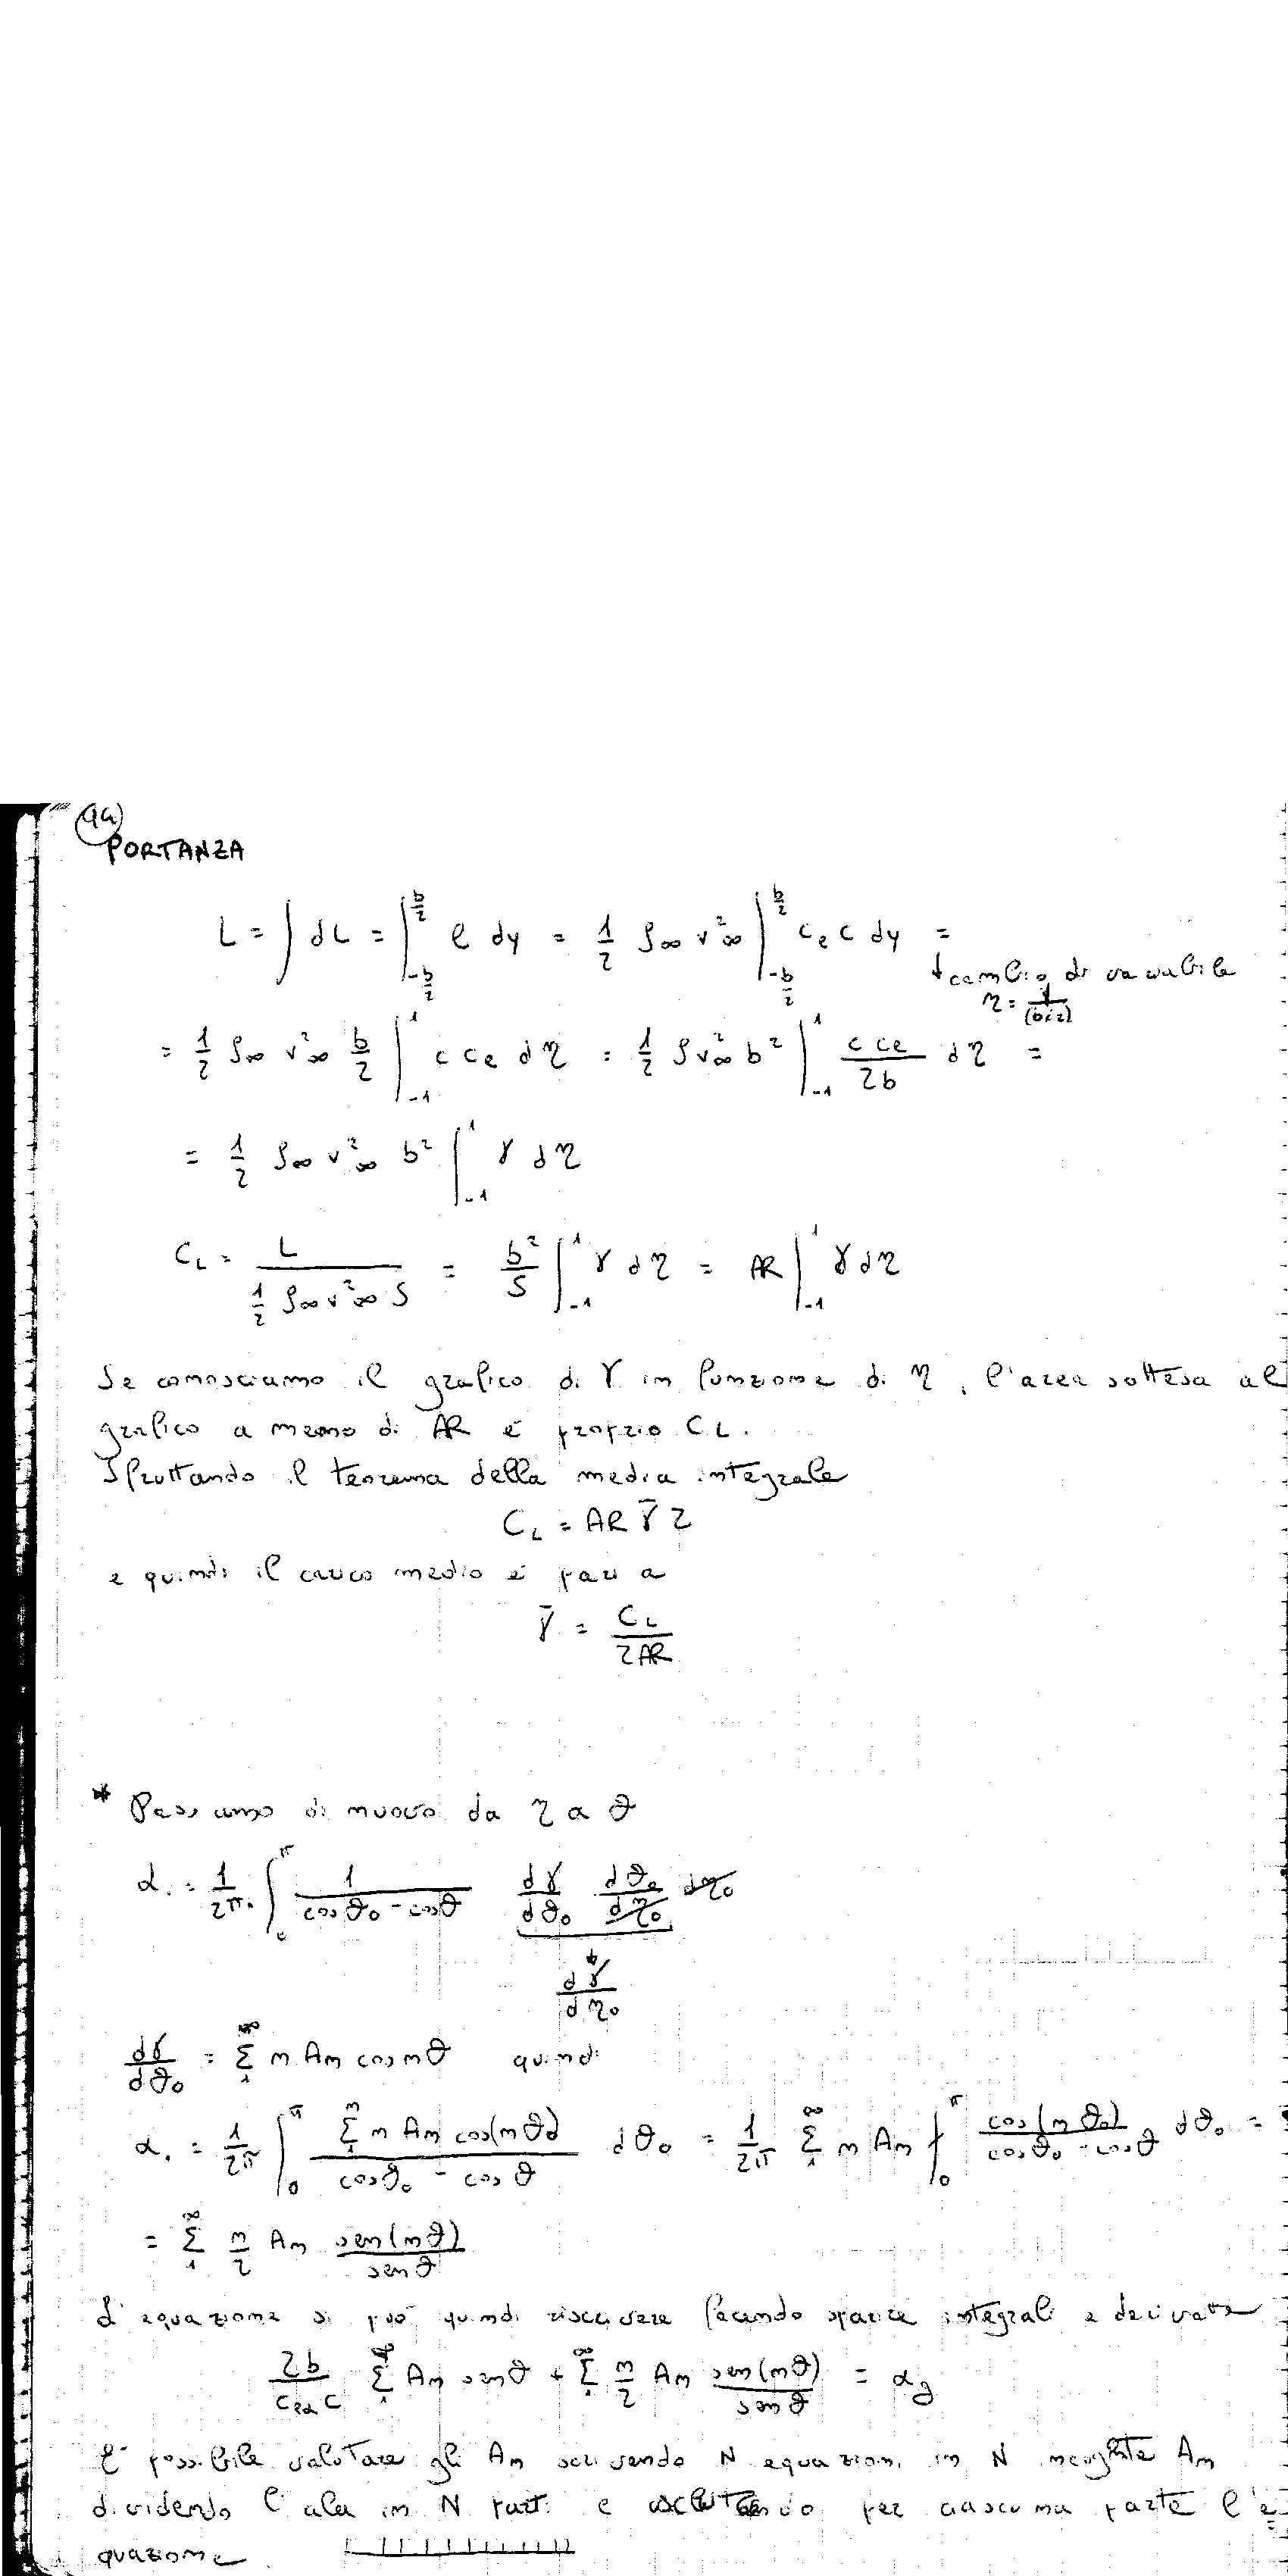 94
PORTANZA
L = ∫ dL = ∫_{-b/2}^{b/2} l dy = 1/2 ρ∞ v∞² ∫_{-b/2}^{b/2} c_l c dy =
↓ cambio di variabile
η = y/(b/2)
= 1/2 ρ∞ v∞² b/2 ∫_{-1}^{1} c c_l dη = 1/2 ρ v∞² b² ∫_{-1}^{1} c c_l/2b dη =
= 1/2 ρ∞ v∞² b² ∫_{-1}^{1} γ dη
C_L = L/(1/2 ρ∞ v∞² S) = b²/S ∫_{-1}^{1} γ dη = AR ∫_{-1}^{1} γ dη
Se conosciamo il grafico di γ in funzione di η, l'area sottesa al
grafico a meno di AR è proprio C_L.
Sfruttando il teorema della media integrale
C_L = AR γ̄ 2
e quindi il carico medio è pari a
γ̄ = C_L/2AR
* Passiamo di nuovo da η a θ
α_i = 1/2π ∫_0^π 1/(cosθ₀ - cosθ) dγ/dθ₀ dθ₀/dη₀ dη₀
↓
dγ/dη₀
dγ/dθ₀ = Σ_1^∞ n A_n cos nθ quindi
α_i = 1/2π ∫_0^π Σ_1^n n A_n cos(nθ₀)/(cosθ₀ - cosθ) dθ₀ = 1/2π Σ_1^∞ n A_n ∫_0^π cos(nθ₀)/(cosθ₀ - cosθ) dθ₀ =
= Σ_1^∞ n/2 A_n sen(nθ)/senθ
L'equazione si può quindi riscrivere facendo sparire integrali e derivate
2b/(c_{lα} c) Σ_1^∞ A_n senθ + Σ_1^∞ n/2 A_n sen(nθ)/senθ = α_g
E' possibile valutare gli A_n scrivendo N equazioni in N incognite A_n
dividendo l'ala in N parti e per ciascuna parte l'e
quazione